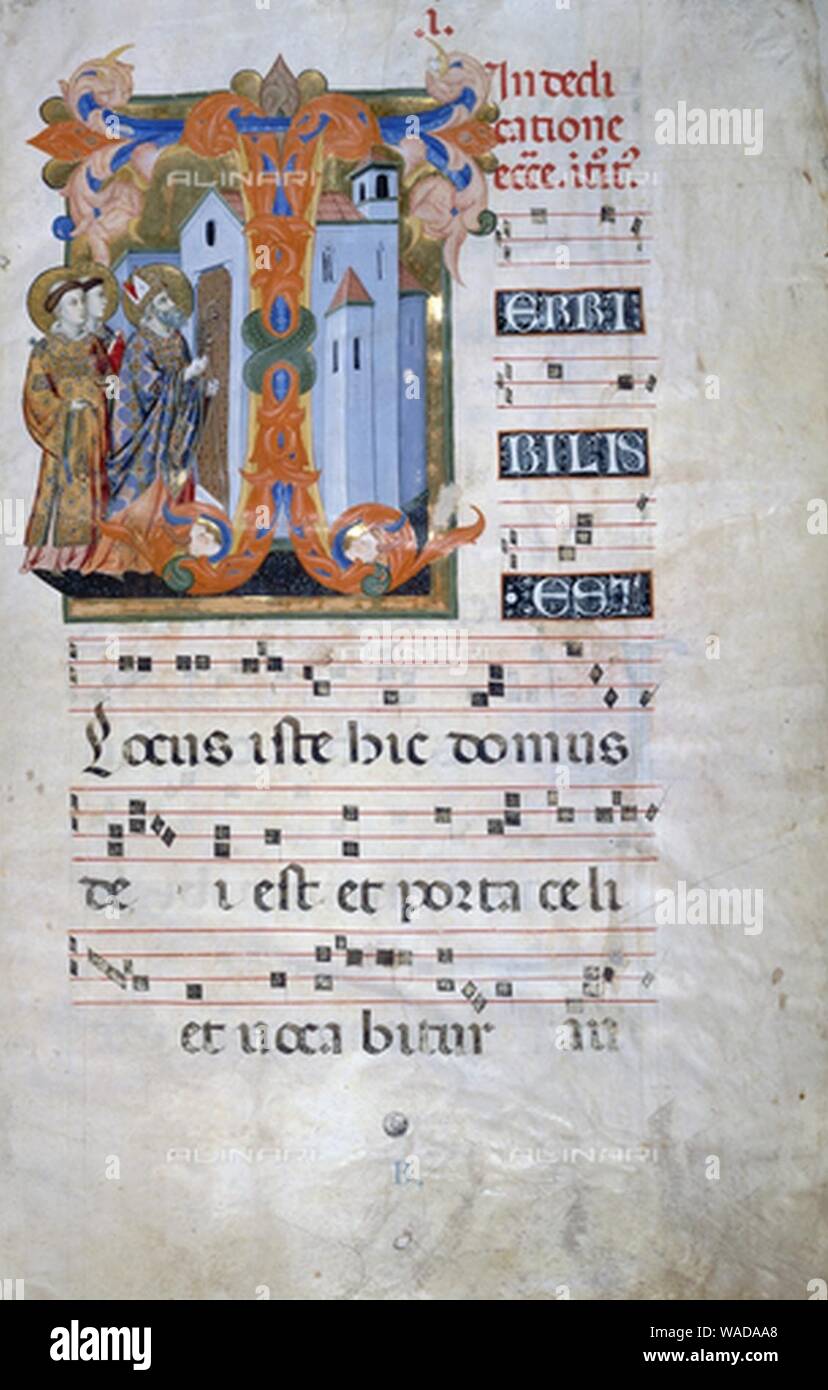 .I.
In dedi
catione
ecce. itit.
T
ERRI
BILIS
EST
Locus iste hic domus
de i est et porta celi
et uoca bitur au
B.
ALINARI
ALINARI
ALINARI
ALINARI
alamy
Image ID: WADAA8
www.alamy.com